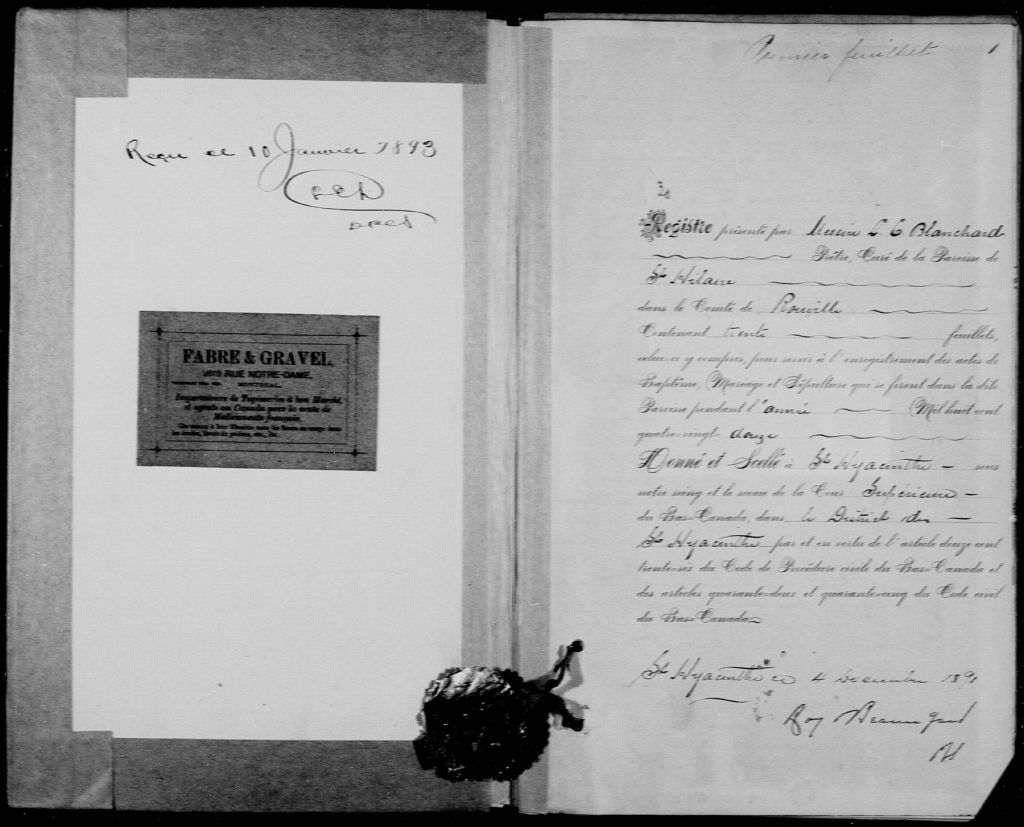 Reçu ce 10 Janvier 1893
FABRE & GRAVEL,
1619 RUE NOTRE-DAME,
MONTREAL,
Importateurs de Tapisseries à bon Marché,
et agents au Canada pour la vente de
Médicaments français,
Premier feuillet 1
Registre présenté par Messire L C Blanchard
Prêtre, Curé de la Paroisse de
St Hilaire
dans le Comté de Rouville
Contenant trente feuillets,
celui-ci y compris, pour servir à l'enregistrement des actes de
Baptême, Mariage et Sépulture qui se feront dans la dite
Paroisse pendant l'année Mil huit cent
quatre-vingt-douze
Donné et Scellé à St Hyacinthe – sous
notre seing et le sceau de la Cour Supérieure –
du Bas-Canada, dans le District de –
St Hyacinthe par et en vertu de l'article douze cent
trente-six du Code de Procédure civile du Bas-Canada et
des articles quarante-deux et quarante-cinq du Code civil
du Bas-Canada
St Hyacinthe ce 4 Décembre 1891
Roy Beauregard